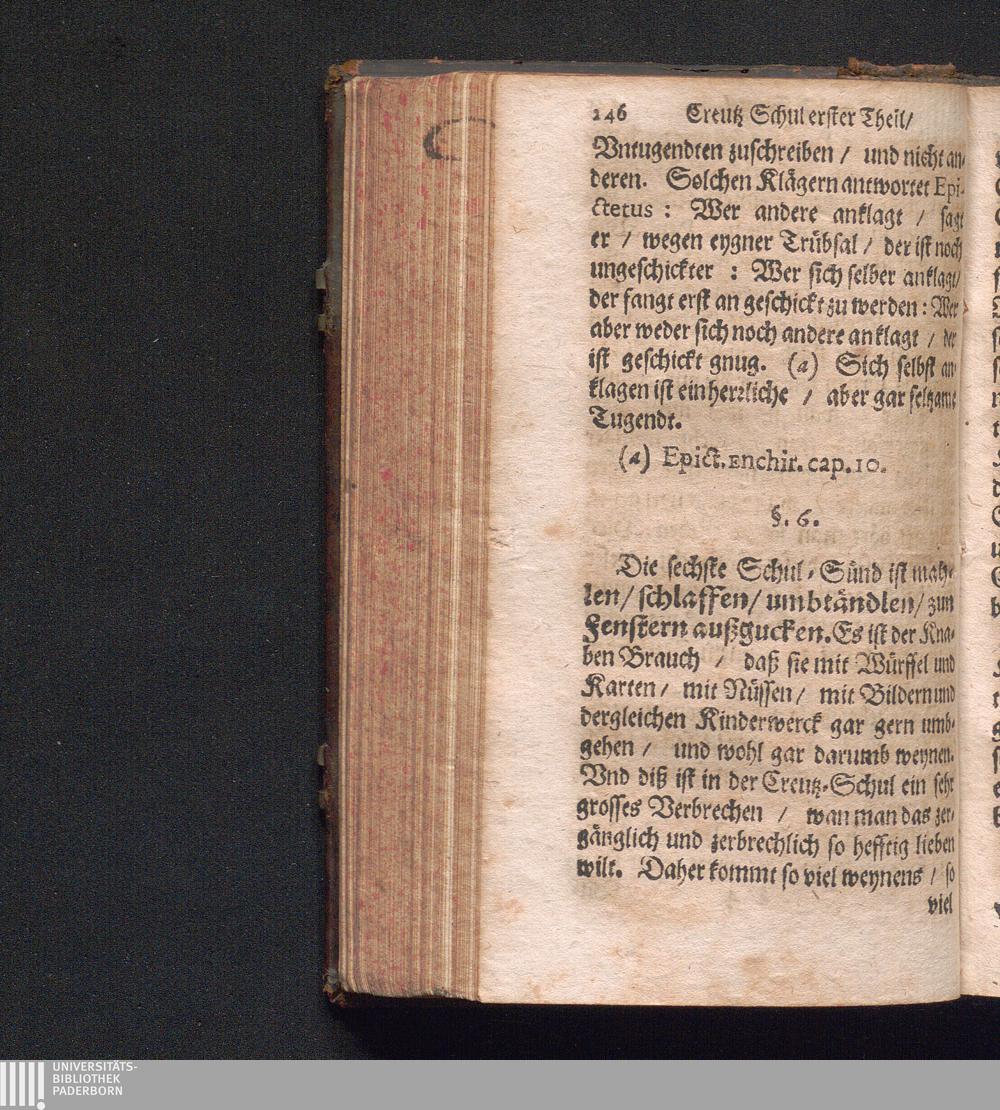 246 Creutz Schul erster Theil/
Vntugendten zuschreiben / und nicht an-
deren. Solchen Klägern antwortet Epi-
ctetus : Wer andere anklagt / sagt
er / wegen eygner Trübsal / der ist noch
ungeschickter : Wer sich selber anklagt/
der fangt erst an geschickt zu werden : Wer
aber weder sich noch andere anklagt / der
ist geschickt gnug. (a) Sich selbst an-
klagen ist ein herrliche / aber gar seltzame
Tugendt.
(a) Epict. Enchir. cap. 10.
§. 6.
Die sechste Schul-Sünd ist mah-
len/ schlaffen/ umbtändlen/ zun
Fenstern außgucken. Es ist der Kna-
ben Brauch / daß sie mit Würffel und
Karten/ mit Nüssen/ mit Bildern und
dergleichen Kinderwerck gar gern umb-
gehen / und wohl gar darumb weynen.
Vnd diß ist in der Creutz-Schul ein sehr
grosses Verbrechen / wan man das zer-
gänglich und zerbrechlich so hefftig lieben
wilt. Daher kommt so viel weynens / so
viel
UNIVERSITÄTS-
BIBLIOTHEK
PADERBORN